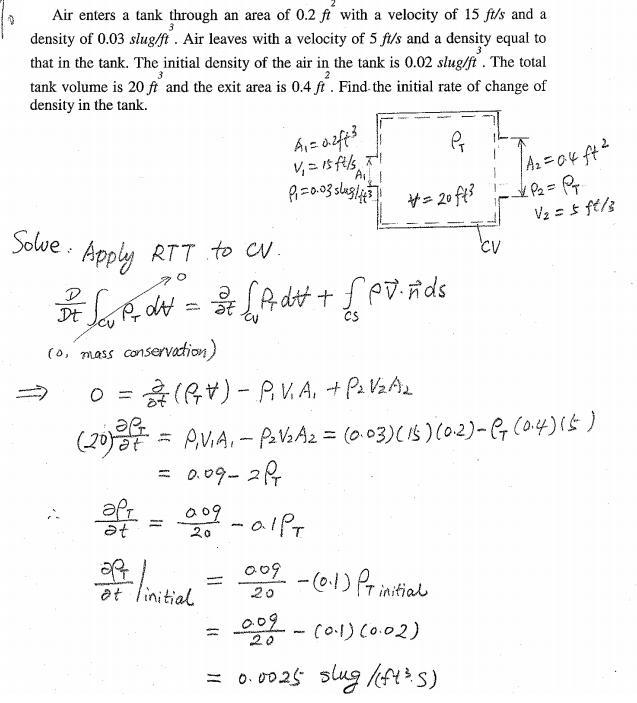 1.
2
Air enters a tank through an area of 0.2 ft² with a velocity of 15 ft/s and a
density of 0.03 slug/ft³. Air leaves with a velocity of 5 ft/s and a density equal to
that in the tank. The initial density of the air in the tank is 0.02 slug/ft³. The total
tank volume is 20 ft³ and the exit area is 0.4 ft². Find the initial rate of change of
density in the tank.
A₁ = 0.2ft³
V₁ = 15 ft/s
A₁
ρ₁ = 0.03 slug/ft³
ρ_T
V = 20 ft³
A₂ = 0.4 ft²
ρ₂ = ρ_T
V₂ = 5 ft/s
CV
Solve: Apply RTT to CV.
D/Dt ∫_CV ρ_T dV → 0 = ∂/∂t ∫_CV ρ_T dV + ∫_CS ρ V⃗·n⃗ ds
(0, mass conservation)
⇒ 0 = ∂/∂t (ρ_T V) − ρ₁V₁A₁ + ρ₂V₂A₂
(20) ∂ρ_T/∂t = ρ₁V₁A₁ − ρ₂V₂A₂ = (0.03)(15)(0.2) − ρ_T (0.4)(5)
= 0.09 − 2ρ_T
∴ ∂ρ_T/∂t = 0.09/20 − 0.1ρ_T
∂ρ_T/∂t |initial = 0.09/20 − (0.1) ρ_T initial
= 0.09/20 − (0.1)(0.02)
= 0.0025 slug/(ft³·s)